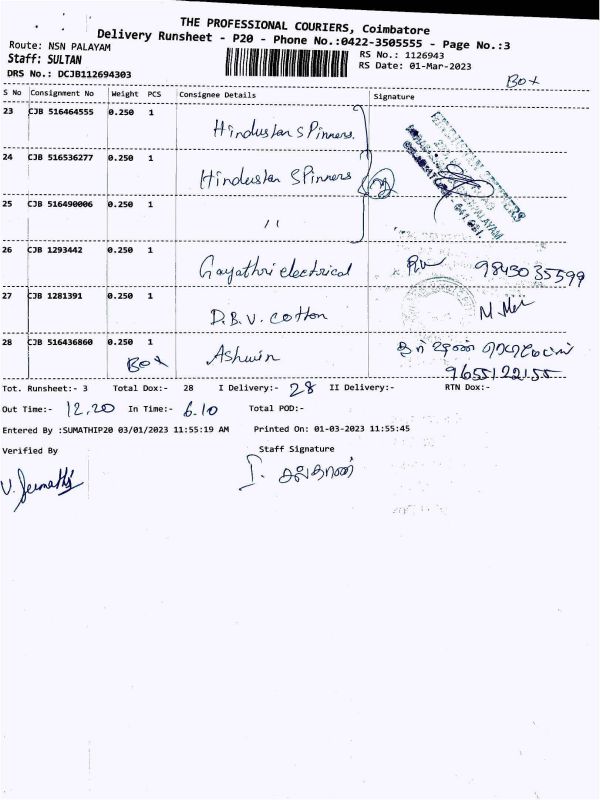 THE PROFESSIONAL COURIERS, Coimbatore
Delivery Runsheet - P20 - Phone No.:0422-3505555 - Page No.:3
Route: NSN PALAYAM
RS No.: 1126943
Staff: SULTAN
RS Date: 01-Mar-2023
DRS No.: DCJB112694303
Box
S No Consignment No Weight PCS Consignee Details Signature
23 CJB 516464555 0.250 1 Hindustan Spinners.
24 CJB 516536277 0.250 1 Hindustan Spinners
25 CJB 516490006 0.250 1 〃
26 CJB 1293442 0.250 1 Gayathri electrical 98430 35599
27 CJB 1281391 0.250 1 D.B.V. cotton
28 CJB 516436860 0.250 1 Ashwin
Box 9655122155
Tot. Runsheet:- 3 Total Dox:- 28 I Delivery:- 28 II Delivery:- RTN Dox:-
Out Time:- 12.20 In Time:- 6.10 Total POD:-
Entered By :SUMATHIP20 03/01/2023 11:55:19 AM Printed On: 01-03-2023 11:55:45
Verified By Staff Signature